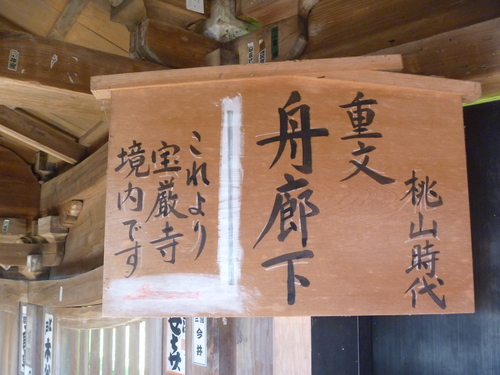 重文
桃山時代
舟廊下
これより
宝厳寺
境内です
今井